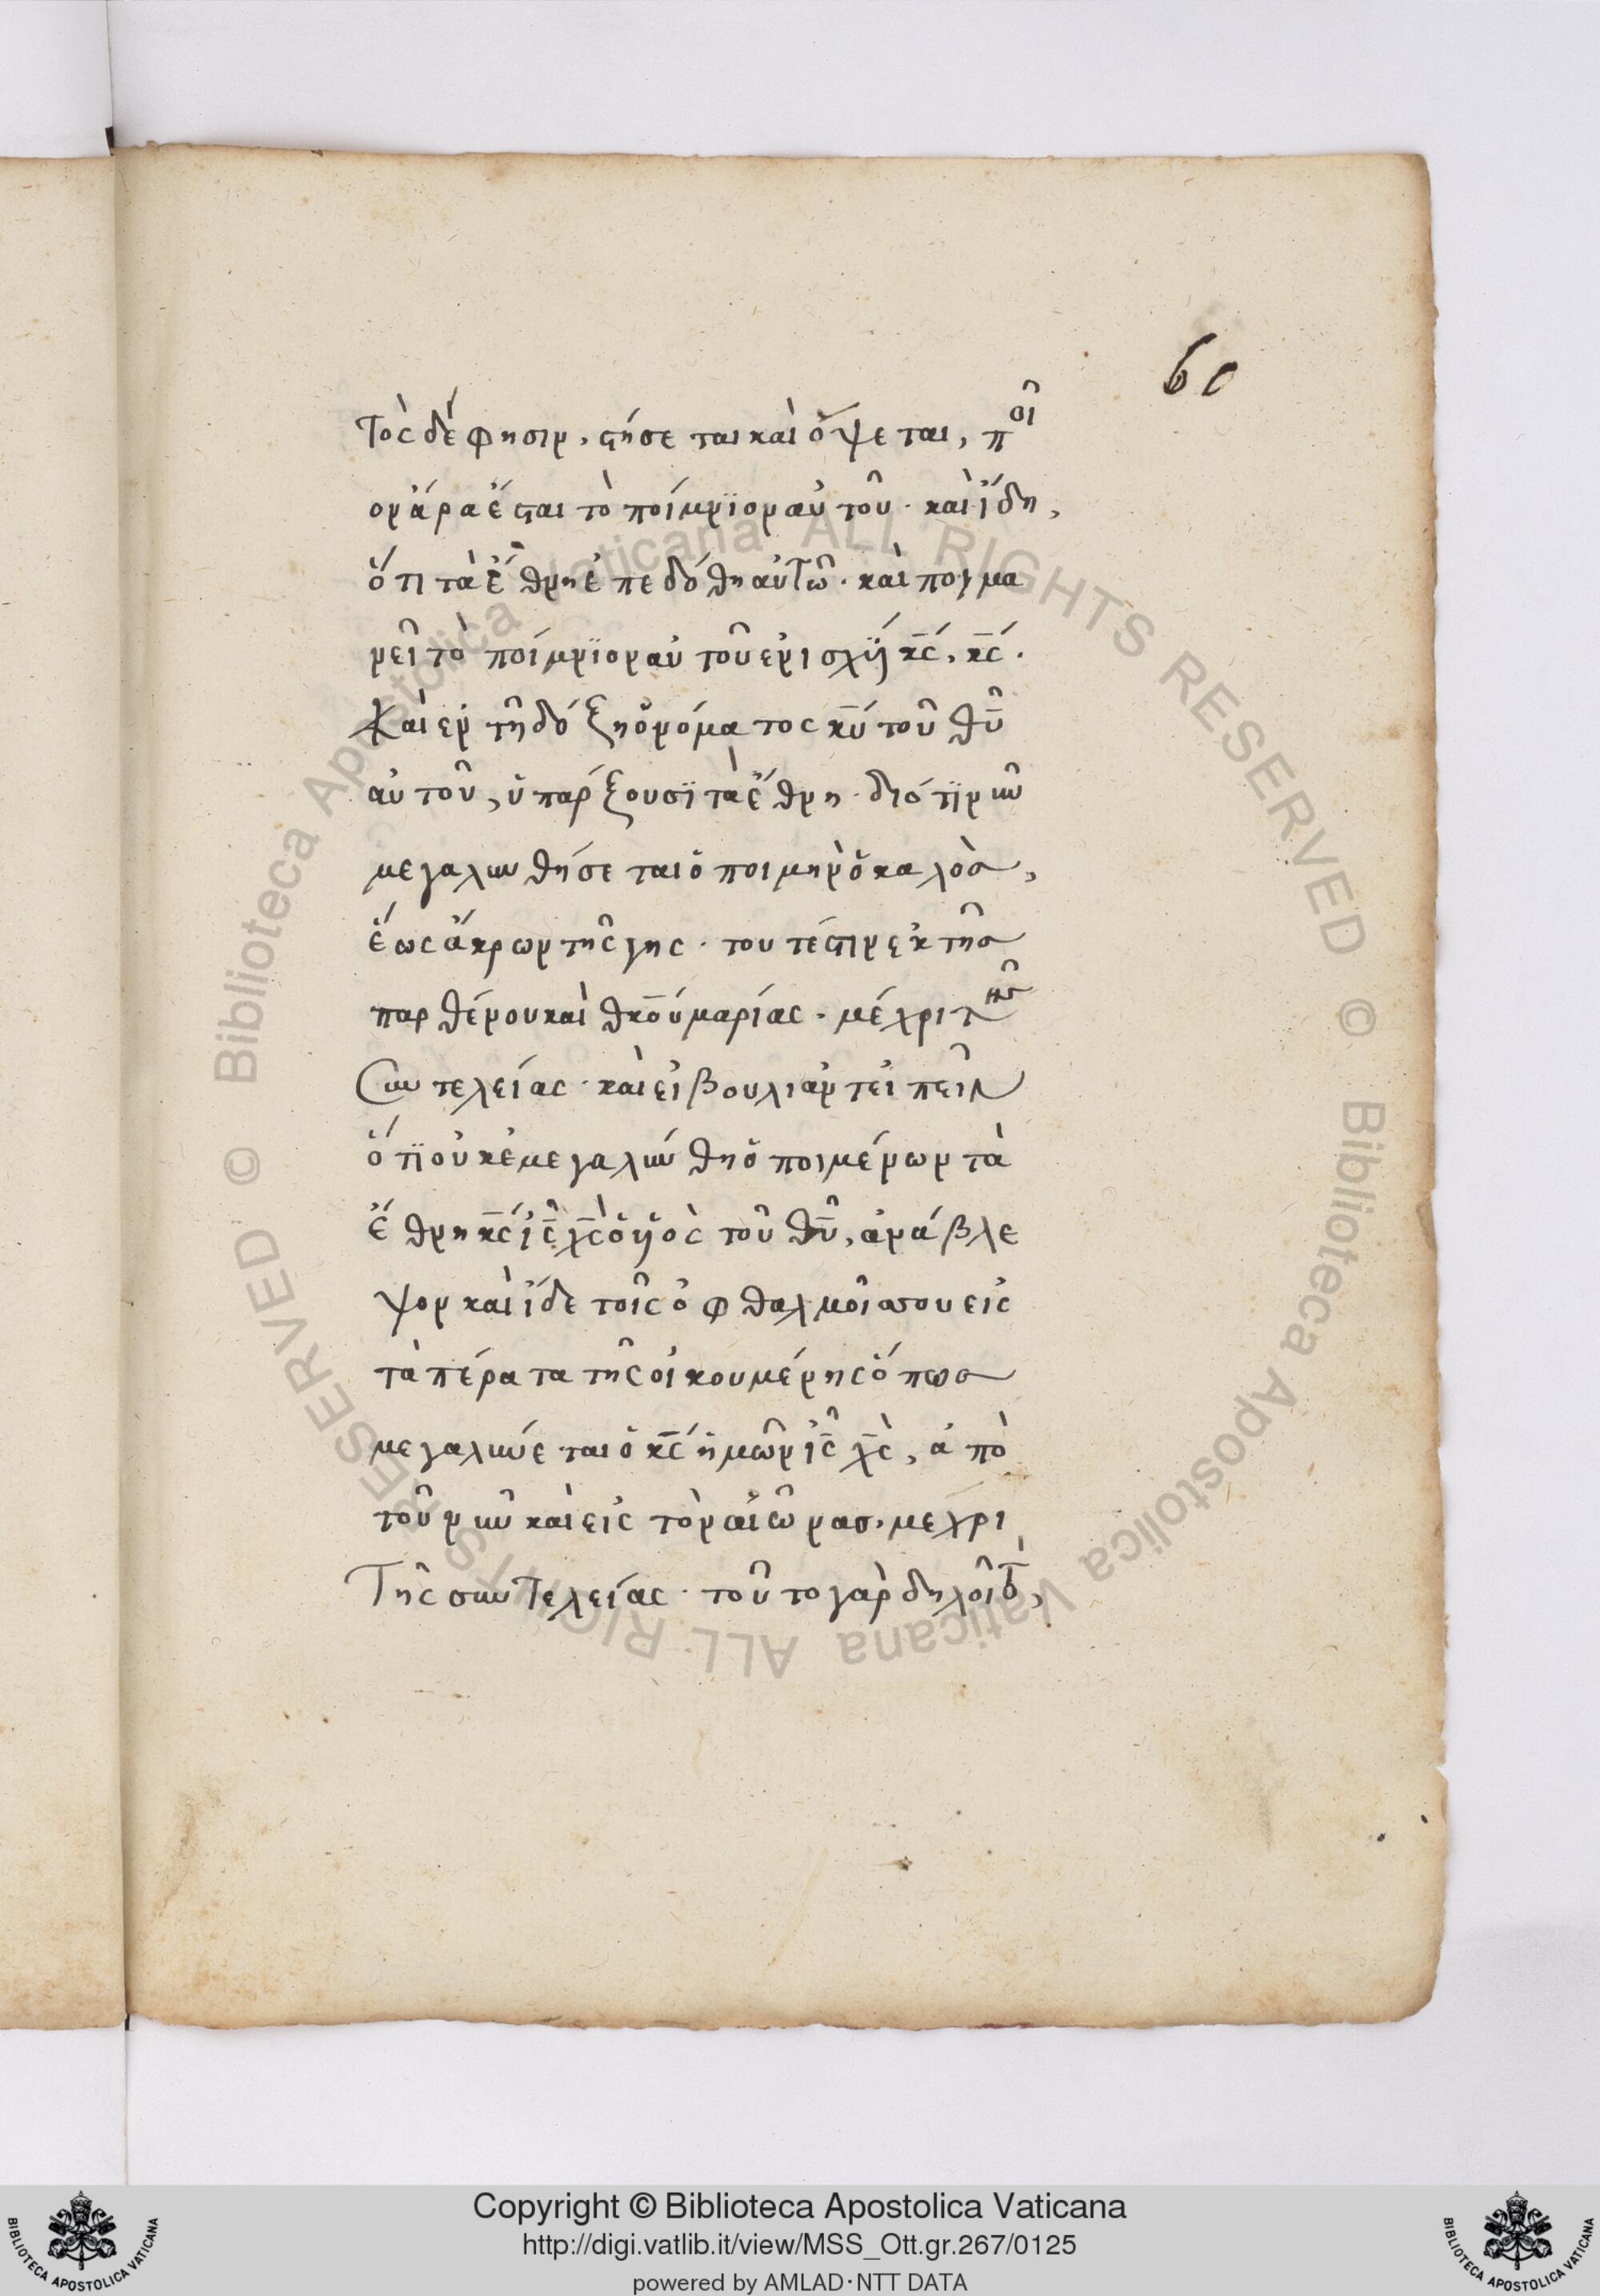 60
τὸς δέ φησιν, στήσεται καὶ ὄψεται, ποῖ
ον ἄρα ἔσται τὸ ποίμνϊον αὐτοῦ · καὶ ἴδη,
ὅτι τὰ ἔθνη ἐπεδόθη αὐτῶ · καὶ ποιμα
νεῖ τὸ ποίμνϊον αὐτοῦ ἐν ισχύϊ κς́, κς́.
Καὶ ἐν τῆ δόξη ὀνόματος κῡ́ τοῦ θῡ
αὐτοῦ, ὑπάρξουσϊ τὰ ἔθνη · διότϊ νῦν
μεγαλυνθήσεται ὁ ποιμὴν ὁ καλὸσ,
ἕως ἄκρων τῆς γης · τουτέστιν ἐκ τῆσ
παρθένου καὶ θκ̄ού μαρίας · μέχρι τῆσ
Συντελείας · καὶ εἰ βουλιαντεἰπεῖν
ὅτϊ οὐκ ἐμεγαλύνθη ὁ ποιμένων τὰ
ἔθνη κ̄ς ἰ̄ς χ̄ς ὁ ϋἱὸς τοῦ θῡ, ἀνάβλε
ψον καὶ ἴδε τοῖς ὀφθαλμοῖσ σου εἰς
τὰ πέρατα τῆς οἰκουμένης ὅπωσ
μεγαλύνεται ὁ κ̄ς ἡμῶν ἰ̄ς χ̄ς, ἀπὸ
τοῦ νῦν καὶ εἰς τὸν αἰῶνασ, μέχρι
Τῆς συντελείας · τοῦτο γὰρ δηλοῖ τὸ,
Copyright © Biblioteca Apostolica Vaticana
http://digi.vatlib.it/view/MSS_Ott.gr.267/0125
powered by AMLAD·NTT DATA
BIBLIOTECA APOSTOLICA VATICANA
BIBLIOTECA APOSTOLICA VATICANA
© Biblioteca Apostolica Vaticana ALL RIGHTS RESERVED
© Biblioteca Apostolica Vaticana ALL RIGHTS RESERVED